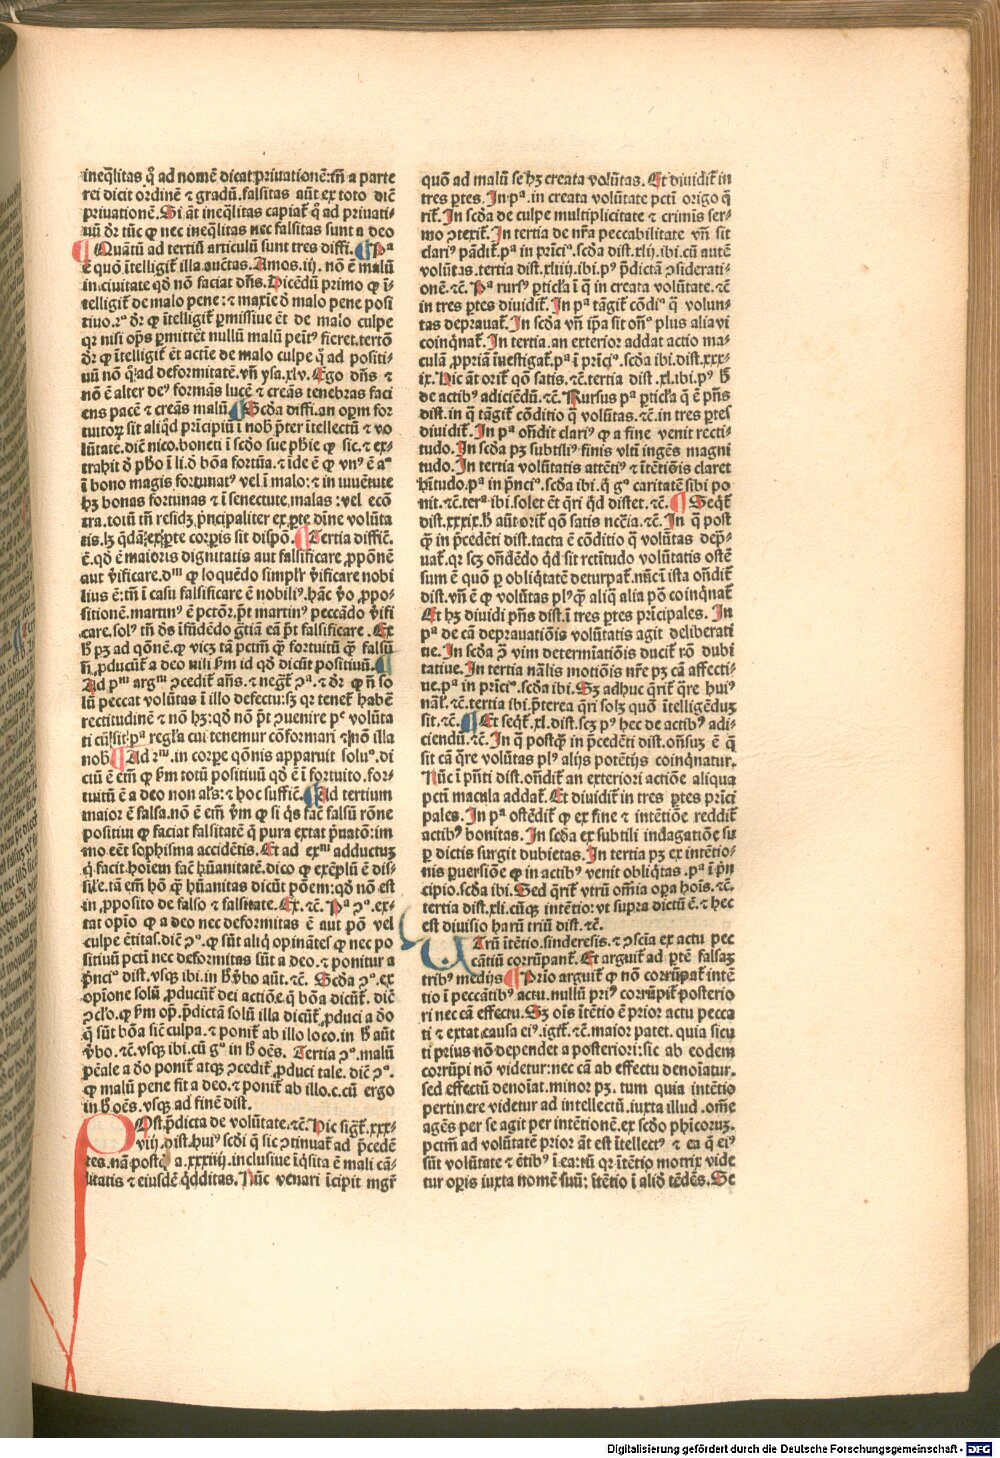 ineq̄litas q̄ ad nomē dicat priuationē: tn̄ a parte
rei dicit ordinē ⁊ gradū. falsitas aūt ex toto dic̄
priuationē. Si āt ineq̄litas capiat᷑ q̄ ad priuati-
uū dr̄ tūc ꝙ nec ineq̄litas nec falsitas sunt a deo
¶ Quātū ad tertiū articulū sunt tres diffi. ¶ Pᵃ
ē quō ītelligit᷑ illa auc̄tas. Amos. iij. nō ē malū
in ciuitate qd̄ nō faciat dn̄s. Dicēdū primo ꝙ ī-
telligit᷑ de malo pene: ⁊ maxīe d̄ malo pene posi
tiuo. 2° dr̄ ꝙ ītelligit᷑ ꝑmissiue ēt de malo culpe
qr nisi op̄s ꝑmittēt nullū malū fieret. tertō
dr̄ ꝙ ītelligit᷑ ēt actiē de malo culpe q̄ ad positi-
uū nō q̄ ad deformitatē. vn̄ ysa. xlv. Ego dn̄s ⁊
nō ē alter de⁹ formās lucē ⁊ creās tenebras faci
ens pacē ⁊ creās malū. ¶ Scd̄a diffi. an oꝑm for
tuitoꝝ sit aliqd̄ prīcipiū ī nob̄ p̄ter ītellectū ⁊ vo
lūtatē. dic̄ nico. boneti ī scd̄o sue ph̄ie ꝙ sic. ⁊ ex-
trahit d̄ pho ī li. d̄ bōa fortūa. ⁊ ide ē ꝙ vn⁹ ē a°
ī bono magis fortunat⁹ vel ī malo: ⁊ in iuuētute
hꝫ bonas fortunas ⁊ ī senectute malas: vel ecō
tra. totū tn̄ residꝫ pͥncipaliter ex ꝑte dīne volūta
tis. lꝫ qdā ex ꝑte corꝑis sit dispō. ¶ Tertia difficl̄.
ē. qd̄ ē maioris dignitatis aut falsificare ꝓpōnē
aut v̄ificare. dᵐ ꝙ loquēdo simplr̄ v̄ificare nobi
lius ē: tn̄ ī casu falsificare ē nobili⁹. hāc v̄o ꝓpo-
sitionē. martin⁹ ē pctōr. p̄t martin⁹ peccādo v̄ifi
care. sol⁹ tn̄ ds īfūdēdo gr̄tiā eā p̄t falsificare. Ex
h̄ pꝫ ad qōnē. ꝙ vicꝫ tā pctm̄ ꝙ fortuitū ꝙ falsū
n̄ ꝓducūt᷑ a deo nili ẜm id qd̄ dicūt positiuū. ¶
Ad pᵐ argᵐ ↄcedit᷑ an̄s. ⁊ neg̃t᷑ ↄᵃ. ⁊ dr̄ ꝙ n̄ so
lū peccat volūtas ī illo defectu: sꝫ qr tenet᷑ habē
rectitudinē ⁊ nō hꝫ: qd̄ nō p̄t ↄuenire
regl̄a cui tenemur cōformari ⁊ nō illa
nob̄. ¶ Ad 2ᵐ. in corꝑe qōnis apparuit solu°. di
ciū ē em̄ ꝙ ẜm totū positiuū qd̄ ē ī fortuito. for-
tuitū ē a deo non al's: ⁊ hoc suffic̄. ¶ Ad tertium
maior ē falsa. nō ē em̄ v̄m ꝙ si q̄s fac̄ falsū rōne
positiui ꝙ faciat falsitatē q̄ pura extat pͥuatō: im
mo eēt sophisma accidētis. Et ad exᵐ adductuꝫ
q̄ facit hoīem fac̄ hūanitatē. dico ꝙ exēplū ē dis-
sil̄e. tā em̄ hō ꝙ̄ hūanitas dicūt pōem: qd̄ nō est
in ꝓposito de falso ⁊ falsitate. Ex. ⁊c̄. Pᵃ ↄ°. ex-
tat opīo ꝙ a deo nec deformitas ē aut pō vel
culpe ētitas. dic̄ ↄ°. ꝙ sūt aliq̄ opinātes ꝙ nec po
sitiuū pctī nec deformitas sūt a deo. ⁊ ponitur a
pͥnci° dist. vsqꝫ ibi. in h̄ v̄bo aūt. ⁊c̄. Scd̄a ↄ°. ex
opīone solū ꝓducūt᷑ dei actiōe q̄ bōa dicūt᷑. dic̄
ↄclo. ꝙ ẜm op̄. p̄dictā solū illa dicūt᷑ ꝓduci a dō
q̄ sūt bōa sic̄ culpa. ⁊ ponit᷑ ab illo loco. in h̄ aūt
v̄bo. ⁊c̄. vsqꝫ ibi cū g° in h̄ oēs. Tertia ↄ°. malū
pēale a dō ponit᷑ atqꝫ ↄcedit᷑ ꝓduci tale. dic̄ ↄ°.
ꝙ malū pene fit a deo. ⁊ ponit᷑ ab illo. c. cū ergo
in h̄ oēs. vsqꝫ ad finē dist.
POst p̄dicta de volūtate. ⁊c̄. Hic sigt᷑. xxx-
viij. dist. hui⁹ scd̄i q̄ sic ↄtinuat᷑ ad p̄cedē
tes. nā postq̄ a. xxxiiij. inclusiue īq̄sita ē mali cā-
litatis ⁊ eiusdē q̄dditas. Nūc venari īcipit mgr̄
quō ad malū se hꝫ creata volūtas. Et diuidit᷑ in
tres ꝑtes. In pᵃ. in creata volūtate pctī origo q̄
rit᷑. In scd̄a de culpe multiplicitate ⁊ crimīs ser-
mo ↄtexit᷑. In tertia de nr̄a peccabilitate vn̄ sit
clari⁹ pādit᷑. pᵃ in prīci°. scd̄a dist. xlij. ibi. cū autē
volūtas. tertia dist. xliiij. ibi. p⁹ p̄dictā ↄsiderati-
onē. ⁊c̄. Pᵃ rurs⁹ ꝑticl̄a ī q̄ in creata volūtate. ⁊c̄
in tres ꝑtes diuidit᷑. In pᵃ tāgit᷑ cōdi° q̄ volun-
tas deprauat᷑. In scd̄a vn̄ ip̄a sit on̄° plus aliavi
coinq̄nat᷑. In tertia. an exterior addat actio ma-
culā ꝓpriā īuestigat᷑. pᵃ ī prīci°. scd̄a ibi. dist. xxx-
ix. Hic āt orit᷑ qō satis. ⁊c̄. tertia dist. xl. ibi. p⁹ h̄
de actib⁹ adiciēdū. ⁊c̄. Rursus pᵃ ꝑticl̄a q̄ ē pn̄s
dist. in q̄ tāgit᷑ cōditio q̄ volūtas. ⁊c̄. in tres ꝑtes
diuidit᷑. In pᵃ on̄dit clari⁹ ꝙ a fine venit recti-
tudo. In scd̄a pꝫ subtili⁹ finis vltī ingēs magni
tudo. In tertia volūtatis attēti° ⁊ ītētiōis claret
hītudo. pᵃ in pͥnci°. scd̄a ibi. q̄ g° caritatē sibi po
nit. ⁊c̄. terᵃ. ibi. solet ēt q̄ri q̄d distet. ⁊c̄. ¶ Seqt᷑
dist. xxxix. h̄ aūt orit᷑ qō satis nec̄ia. ⁊c̄. In q̄ post
q̄ in p̄cedēti dist. tacta ē cōditio q̄ volūtas dep̄-
uat᷑. qr scꝫ on̄dēdo q̄d sit rctītudo volūtatis ostē
sum ē quō ꝑ obliq̄tatē deturpat᷑. nūc ī ista on̄dit᷑
dist. vn̄ ē ꝙ volūtas pl⁹ꝙ̄ aliq̄ alia pō coinq̄nat᷑
Et hꝫ diuidi pn̄s dist. ī tres ꝑtes prīcipales. In
pᵃ de cā deprauatiōis volūtatis agit deliberati
ue. In scd̄a ꝓ vim determīatiōis ducit᷑ rō dubi
tatiue. In tertia nālis motiōis nr̄e pꝫ cā affecti-
ue. pᵃ in prīci°. scd̄a ibi. Sꝫ adhuc q̄rit᷑ q̄re hui⁹
nāl̄. ⁊c̄. tertia ibi. p̄terea q̄ri solꝫ quō ītelligēduꝫ
sit. ⁊c̄. ¶ Et seqt᷑. xl. dist. scꝫ p⁹ hec de actib⁹ adi-
ciendū. ⁊c̄. In q̄ postꝙ̄ in p̄cedēti dist. on̄sus ē q̄
sit cā q̄re volūtas pl⁹ alijs potētijs coinq̄natur.
Nūc ī pn̄ti dist. on̄dit᷑ an exteriori actiōe aliqua
pctī macula addat᷑. Et diuidit᷑ in tres ꝑtes prīci
pales. In pᵃ ostēdit᷑ ꝙ ex fine ⁊ intētiōe reddit᷑
actib⁹ bonitas. In scd̄a ex subtili indagatiōe su
ꝑ dictis surgit dubietas. In tertia pꝫ ex intētio-
nis ꝑuersiōe ꝙ in actib⁹ venit obliq̄tas. pᵃ ī pͥn
cipio. scd̄a ibi. Sed q̄rit᷑ vtrū om̄ia oꝑa hoīs. ⁊c̄.
tertia dist. xli. cūqꝫ intētio: vt supra dictū ē. ⁊ hec
est diuisio harū triū dist. ⁊c̄.
UTrū ītētio. sinderesis. ⁊ ↄsciā ex actu pec
cātiū corrūpant᷑. Et arguit᷑ ad ꝑtē falsaꝫ
trib⁹ medijs ¶ Prīo arguit᷑ ꝙ nō corrūpat᷑ intē
tio ī peccātib⁹ actu. nullū pri⁹ corrūpit᷑ posterio
ri nec cā effectu. Sꝫ oīs ītētio ē prior actu pecca
ti ⁊ extat causa ei⁹. igit᷑. ⁊c̄. maior patet. quia sicu
ti prius nō dependet a posteriori: sic ab eodem
corrūpi nō videtur: nec cā ab effectu denoīatur.
sed effectū denoīat. minor pꝫ. tum quia intētio
pertinere videtur ad intellectū. iuxta illud. om̄e
agēs per se agit per intētionē. ex scd̄o phīcoruꝫ.
pctm̄ ad volūtatē prior āt est ītellect⁹ ⁊ ea q̄ ei⁹
sūt volūtate ⁊ ētib⁹ ī ea: tū qr ītētio motrix vide
tur oꝑis iuxta nomē suū: ītētio ī aliō tēdēs. Se
Digitalisierung gefördert durch die Deutsche Forschungsgemeinschaft - DFG